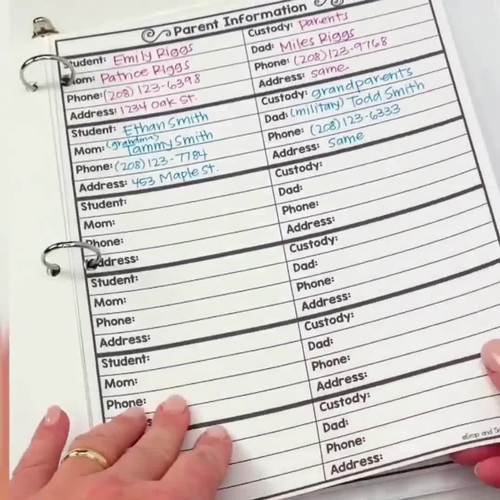 Parent Information
Student: Emily Riggs Custody: Parents
Mom: Patrice Riggs Dad: Miles Riggs
Phone: (208) 123-6398 Phone: (208) 123-9768
Address: 1234 oak St. Address: same
Student: Ethan Smith Custody: grandparents
Mom: (grandma) Tammy Smith Dad: (military) Todd Smith
Phone: (208) 123-7784 Phone: (208) 123-6333
Address: 453 Maple St. Address: Same
Student: Custody:
Mom: Dad:
Phone: Phone:
Address: Address:
Student: Custody:
Mom: Dad:
Phone: Phone:
Address: Address:
Student: Custody:
Mom: Dad:
Phone: Phone:
Address:
Custody:
Dad:
Phone:
Address: